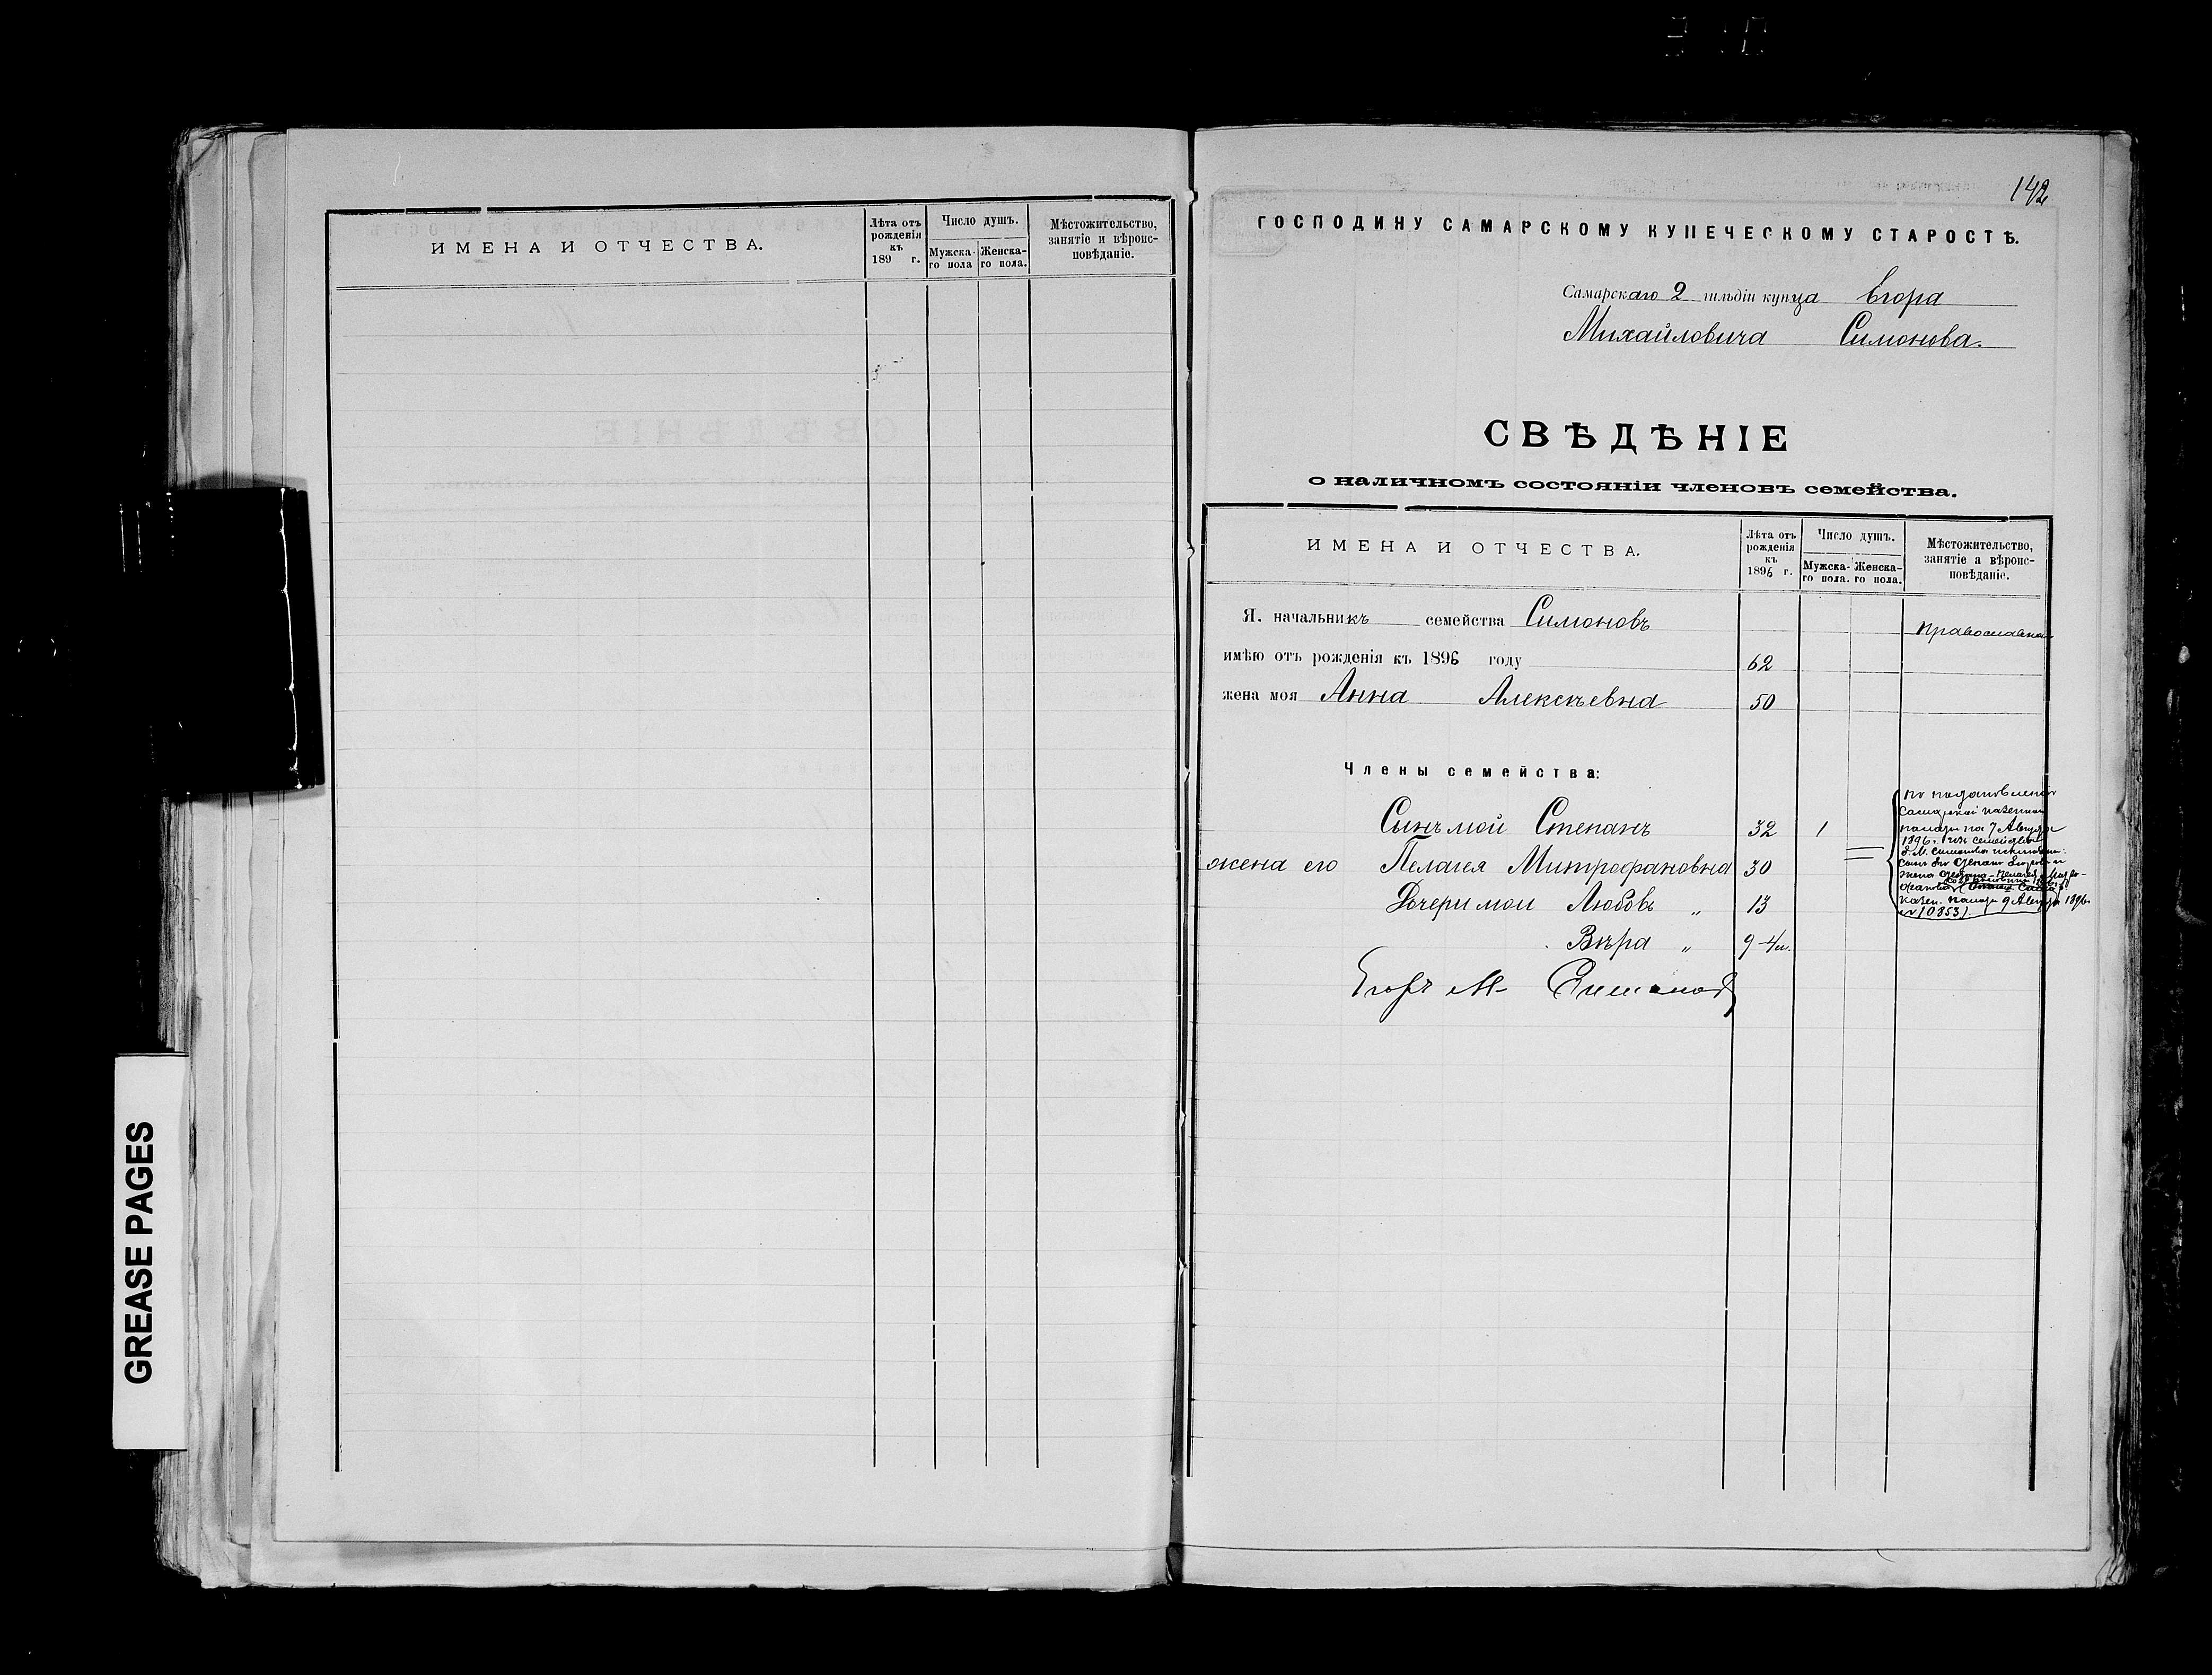 ИМЕНА И ОТЧЕСТВА.
Лѣта отъ рожденія къ 189 г.
Число душъ.
Мужска-го пола
Женска-го пола.
Мѣстожительство, занятіе и вѣроис-повѣданіе.
142
ГОСПОДИНУ САМАРСКОМУ КУПЕЧЕСКОМУ СТАРОСТѢ.
Самарскаго 2 гильдіи купца Егора
Михайловича Симонова.
СВѢДѢНІЕ
о наличномъ состояніи членовъ семейства.
ИМЕНА И ОТЧЕСТВА.
Лѣта отъ рожденія къ 1896 г.
Число душъ.
Мужска-го пола.
Женска-го пола.
Мѣстожительство, занятіе а вѣроис-повѣданіе.
Я. начальникъ семейства Симоновъ
Православнаго
имѣю отъ рожденія къ 1896 году 62
жена моя Анна Алексѣевна 50
Члены семейства:
Сынъ мой Степанъ 32 1
жена его Пелагея Митрофановна 30
Дочери мои Любовь „ 13
Вѣра „ 9-4м.
Егоръ М. Симоновъ
По постановленію
Самарской Казенной
палаты на 7 Августа
1896 г. изъ семейства
Е. М. Симонова исключены:
сынъ его Степанъ Егоровъ и
жена Степана - Пелагея Митро-
фанова
Казен. палаты 9 Августа 1896
№ 10853).
GREASE PAGES